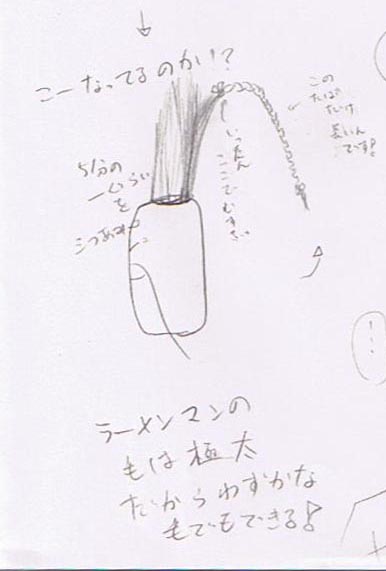 こーなってるのかい!?
この
たば
だけ
長いん
です!
いったん
ここでむすび
5分の
一くらい
を
三つあみ
ラーメンマンの
もは極太
だからわずかな
もでもできる!